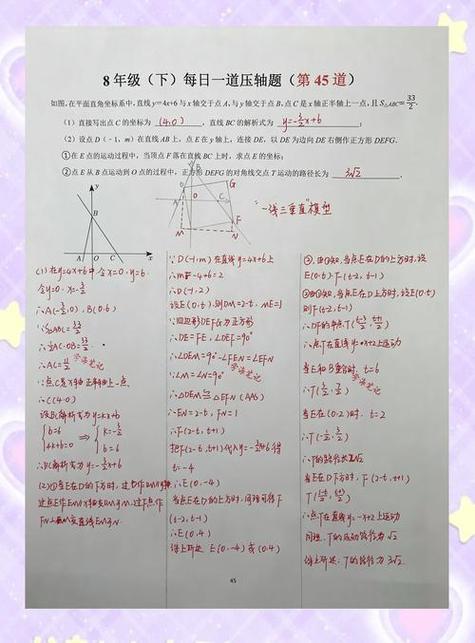 8年级（下）每日一道压轴题（第45道）
如图,在平面直角坐标系中,直线y=4x+6与x轴交于点A,与y轴交于点B,点C是x轴正半轴上一点,且S△ABC=33/2.
（1）直接写出C的坐标为 (4,0) ，直线BC的解析式为 y=-3/2x+6 ；
（2）设点D（-1，m）在直线AB上，点E在y轴上，连接DE，以DE为边向DE右侧作正方形DEFG.
①在E点的运动过程中，当顶点F落在直线BC上时，求点E的坐标；
②点E从B点运动到O点的过程中，正方形DEFG的对角线交点T运动的路径长为 3√2 .
"一线三垂直"模型
(1)在y=4x+6中,令x=0,y=6
令y=0,x=-3/2
∴A(-3/2,0),B(0,6)
∵S△ABC=33/2
∴1/2AC·OB=33/2
∴AC=11/2
∵点C是x轴正半轴上一点
∴C(4,0)
设BC解析式为y=kx+b
{b=6 4k+b=0 ⇒ {k=-3/2 b=6
∴BC解析式为y=-3/2x+6
(2)①当E在D的下方时,过D作
∵D(-1,m)在直线y=4x+6上
∴m=-4+6=2
∴D(-1,2)
设E(0,t),则DM=2-t,ME=1
∵四边形DEFG为正方形
∴DE=FE,∠DEF=90°
∴∠DEM=90°-∠FEN=∠EFN
∵∠M=∠N=90°
∴△DEM≌△EFN(AAS)
∴EN=2-t,FN=1
∴F(2-t,t-1)
把F(2-t,t-1)代入y=-3/2x+6得
t=-4
∴E(0,-4)
当点E在D的上方时,同理可得F
(t-2,t+1)
∴E(0,4)
综上所述 E(0,-4)或(0,4)
②由①知,当点E在D的上方时,设
∴点T在直线y=x+2上运动
当E和B重合时,t=6
当E在(0,2)时,t=2
∴T的路径长2√2
当E在D下方时,F(2-t,t-1)
∴点T在直线y=-x+2上运动
同理,T的运动路径为√2
综上所述:T的路径为3√2
学浪笔记
学浪笔记
学浪笔记
45